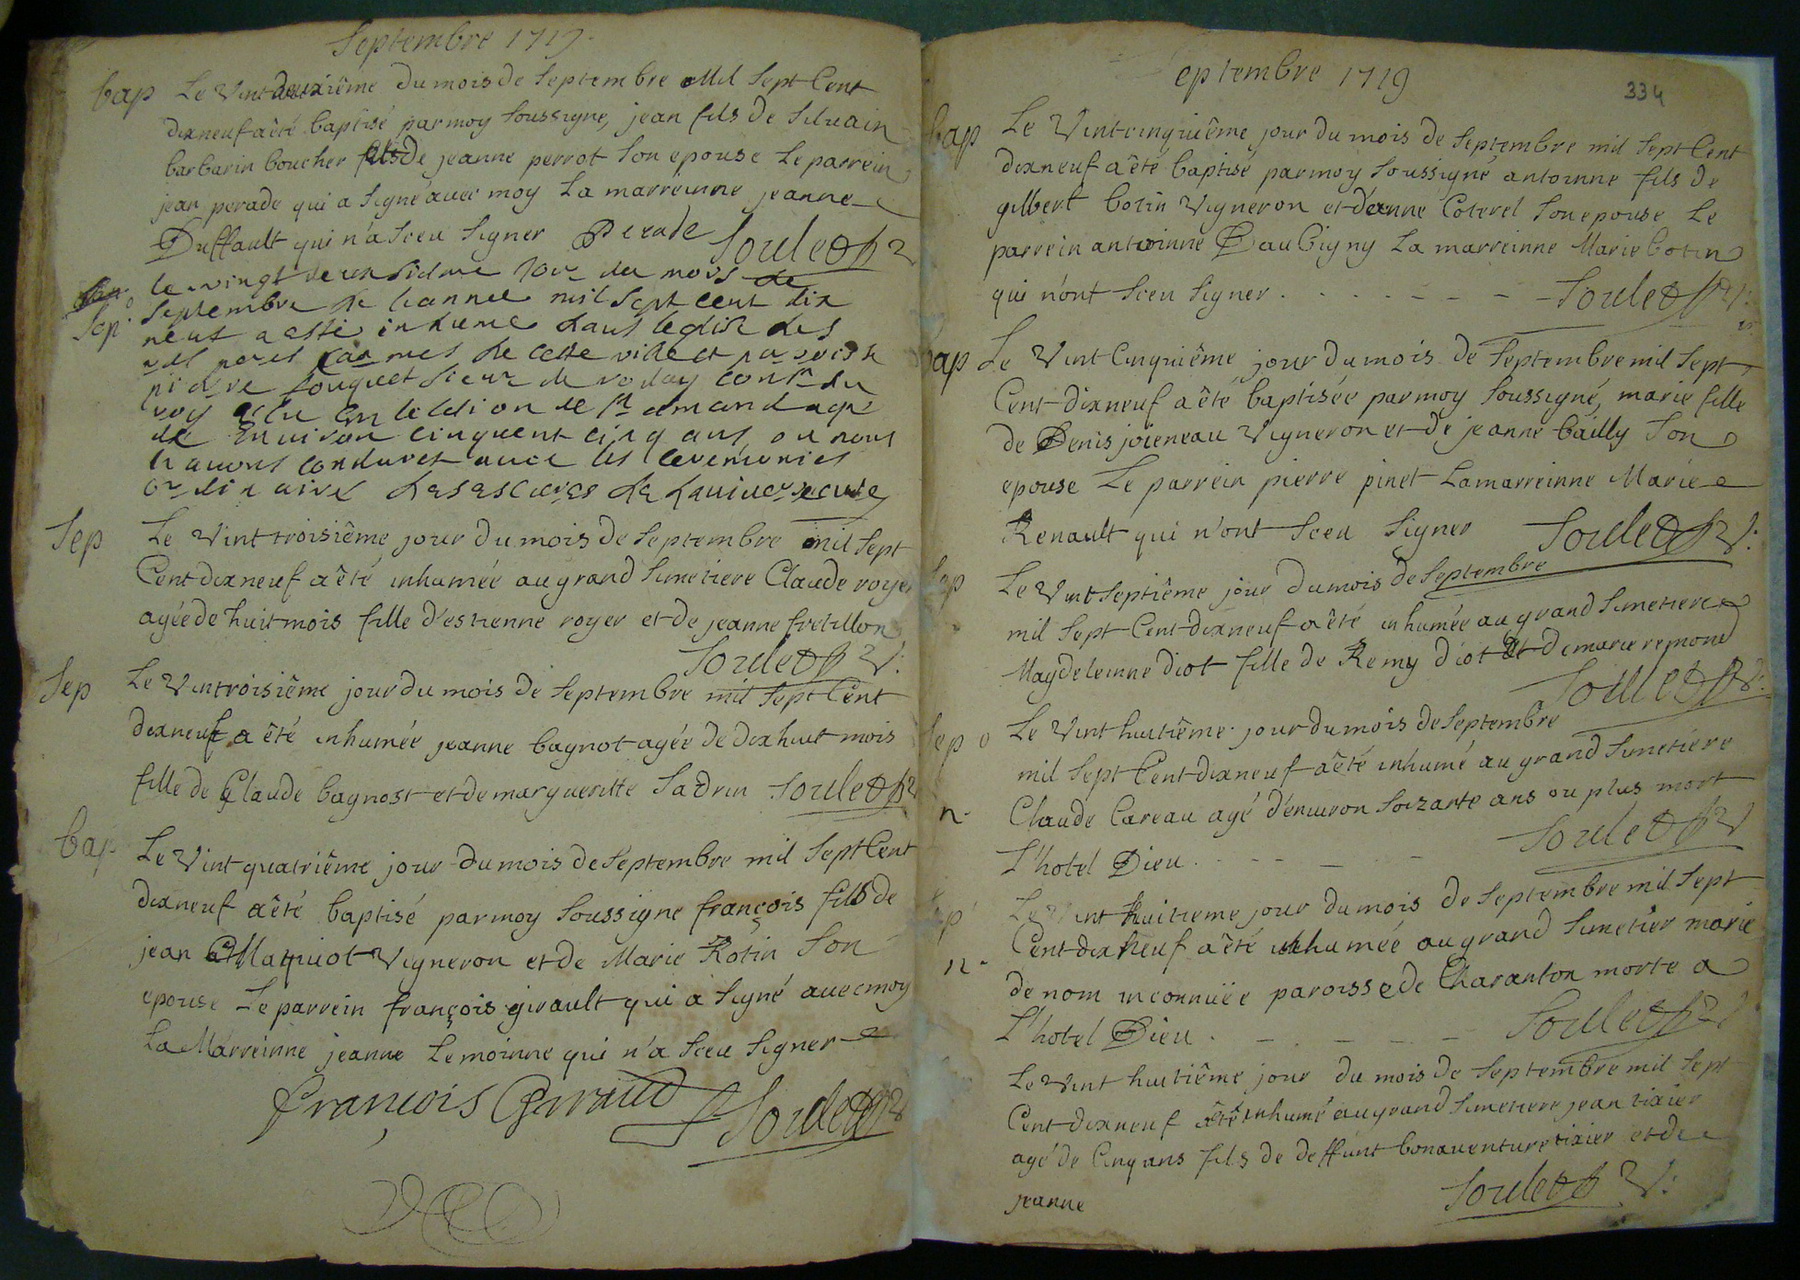 Septembre 1719.
bap Le Vintdeuxiême du mois de Septembre Mil Sept Cent
dixneuf a êté baptisé par moy Soussigne, jean fils de Siluain
barbarin boucher fils de jeanne perrot Son epouse Le parrein
jean perade qui a Signé auec moy La marreinne jeanne
Duffault qui n'a Sceu Signer Perade Soulet V
le vingt deuxsiesme jour du mois de
Sep. Septembre de lannee mil sept cent dix
neuf a esté inhumé dans leglise des
peres Carmes de cette ville et paroisse
pierre fouquet sieur de rolay conr du
roy elu en lelection de st amand agé
de Enuiron cinquent cinq ans, ou nous
lauons conduict auec les ceremonies
ordinaires
Sep Le Vint troisiême jour du mois de Septembre mil Sept
Cent dixneuf a êté inhumée au grand Simetiere Claude royer
agée de huit mois fille d'estienne royer et de jeanne fretillon
Soulet V.
Sep Le Vintroisiême jour du mois de Septembre mil Sept Cent
dixneuf a êté inhumée jeanne bagnot agée de dix huit mois
fille de Claude bagnost et de margueritte Sadrin Soulet V
bap Le Vint quatriême jour du mois de Septembre mil Sept Cent
dixneuf a êté baptisé par moy Soussigne françois fils de
jean Maquiot Vigneron et de Marie Rotin Son
epouse Le parrein françois girault qui a Signé auec moy
La Marreinne jeanne Lemoinne qui n'a Sceu Signer
françois Giraud Soulet V
eptembre 1719
334
bap Le Vintcinquiême jour du mois de Septembre mil Sept Cent
dixneuf a êté baptisé par moy Soussigné antoinne fils de
gilbert botin Vigneron et d'anne Coterel Son epouse Le
parrein antoinne Daubigny La marreinne Marie botin
qui n'ont Sceu Signer Soulet V.
bap Le Vint Cinquiême jour du mois de Septembre mil Sept
Cent dixneuf a êté baptisée par moy Soussigné, marie fille
de Denis joieneau Vigneron et de jeanne bailly Son
epouse Le parrein pierre pinet La marreinne Marie
Renault qui n'ont Sceu Signer Soulet V.
Sep Le Vint Septiême jour du mois de Septembre
mil Sept Cent dixneuf a êté inhumée au grand Simetiere
Magdeleinne diot fille de Remy diot et de marie remond
Soulet V.
Sep Le Vint huitiême jour du mois de Septembre
mil Sept Cent dixneuf a êté inhumé au grand Simetiere
n. Claude Careau agé d'enuiron Soizante ans ou plus mort
L'hotel Dieu Soulet V
Sep Le Vint huitieme jour du mois de Septembre mil Sept
Cent dixneuf a êté inhumée au grand Simetier marie
n. de nom inconnüée paroisse de Charanton morte a
L'hotel Dieu Soulet V
Le Vint huitiême jour du mois de Septembre mil Sept
Cent dixneuf a êté inhumé au grand Simetiere jean tixier
agé de Cinq ans fils de deffunt bonauenture tixier et de
jeanne Soulet V.